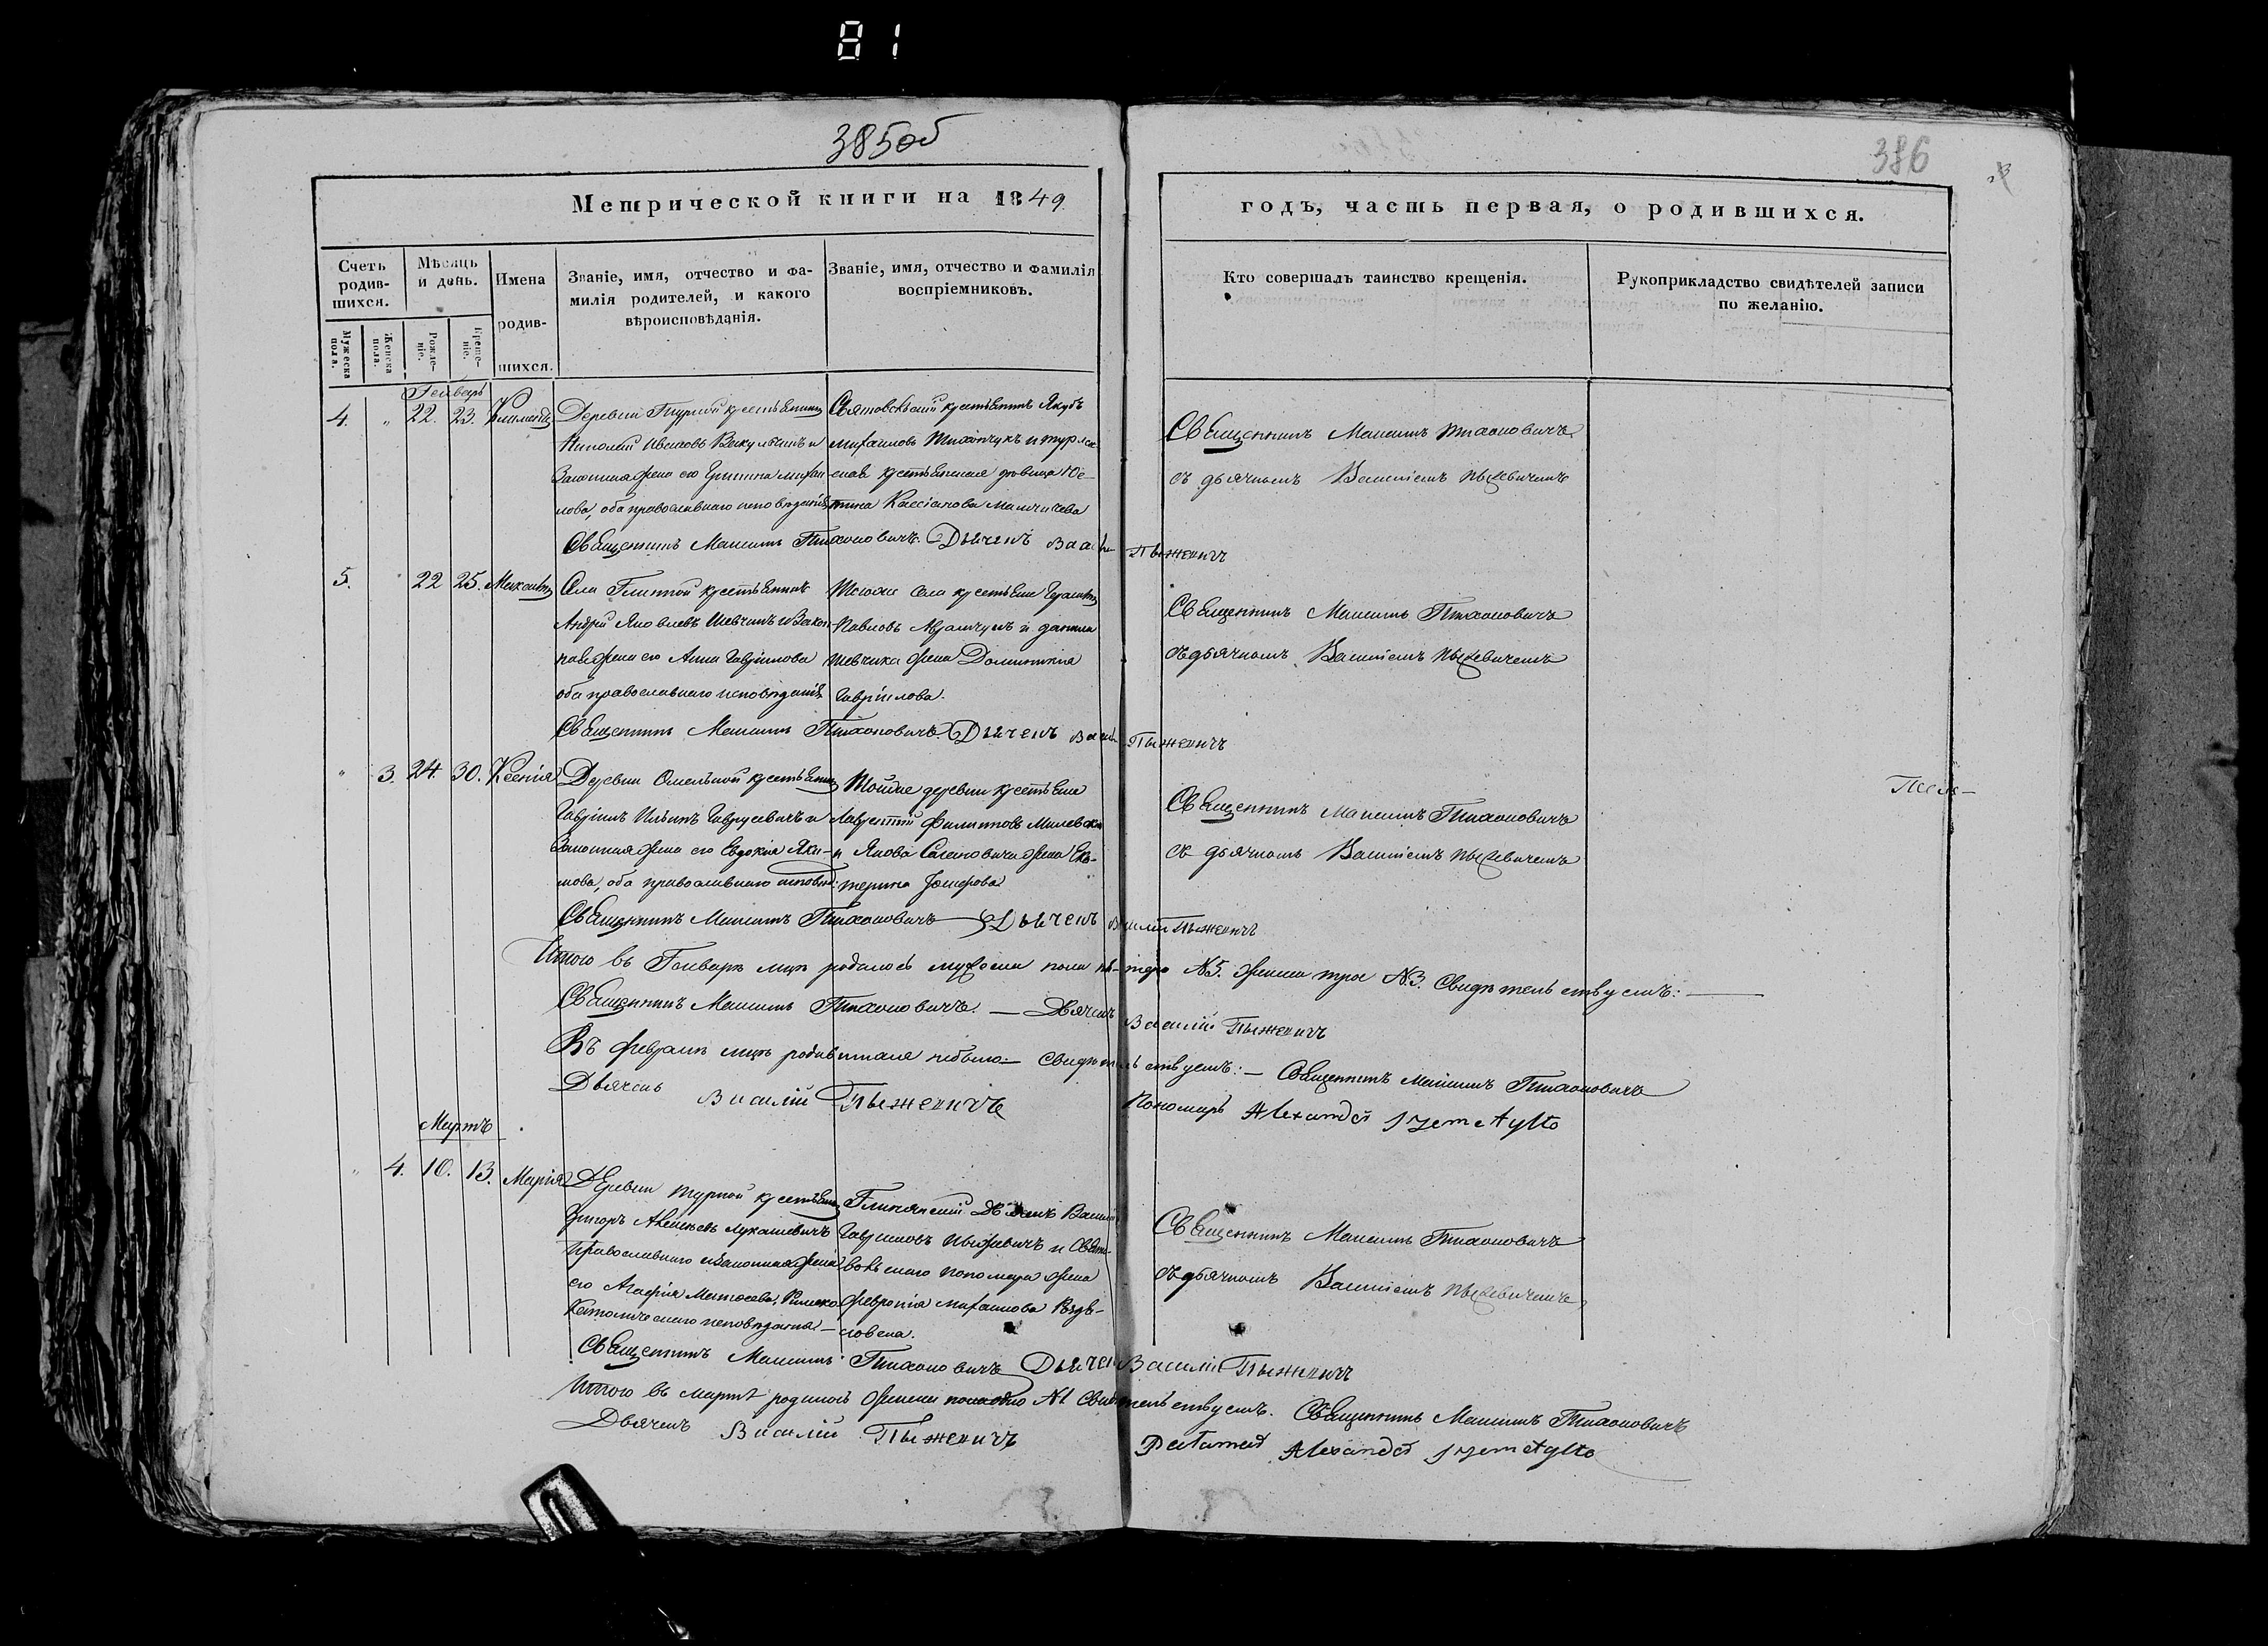 81
385об
386
Метрической книги на 1849
годъ, часть первая, о родившихся.
Счетъ родив-шихся.
Мѣсяцъ и день.
Имена родив-шихся.
Званіе, имя, отчество и фа-
милія родителей, и какого
вѣроисповѣданія.
Званіе, имя, отчество и фамилія
воспріемниковъ.
Кто совершалъ таинство крещенія.
Рукоприкладство свидѣтелей записи
по желанію.
Мужеска пола.
Женска пола.
Рожде-ніе.
Креще-ніе.
Генварь
4. " 22. 23.
Деревни Турной крестьянинъ
Николай Ивановъ
Законная жена его Христина Михаи-
лова, оба православнаго исповѣданія
Святовольскій крестьянинъ Якубъ
Михаиловъ Тихончукъ и турнян-
ская крестьянская дѣвица Юс-
тина Кассіанова
Священникъ Максимъ Тихоновичъ
съ дьячкомъ Василіемъ Пыжевичемъ
Священникъ Максимъ Тихоновичъ. Дьячекъ Васи Пыжевичъ
5. 22 25. Михаилъ
Села Глинной крестьянинъ
Андрей Яковлевъ Шевчикъ и Закон-
ная жена его Анна Гавріилова
оба православнаго исповѣданія
Тогоже села крестьяне Герасимъ
Павловъ Абрамчукъ и Данила
Шевчика жена Доминикія
Гавріилова.
Священникъ Максимъ Тихоновичъ
съ дьячкомъ Василіемъ Пыжевичемъ
Священникъ Максимъ Тихоновичъ. Дьячекъ Васи Пыжевичъ
" 3. 24. 30. Ксенія
Деревни Омельной крестьянинъ
Гавріилъ Ильинъ Гаврусевичъ и
Законная жена его Евдокія Яки-
мова, оба православнаго исповѣд:
Тойже деревни крестьяне
Лаврентій Филиповъ Милевскій
и Якова жена Ека-
терина
Священникъ Максимъ Тихоновичъ
съ дьячкомъ Василіемъ Пыжевичемъ
Священникъ Максимъ Тихоновичъ Дьячекъ Василій Пыжевичъ
Итого въ Генварѣ мцѣ родилось мужеска пола пя-теро №5. женска трое №3. Свидѣтельствуемъ:
Священникъ Максимъ Тихоновичъ. — Дьячекъ Василій Пыжевичъ
Въ февралѣ мцѣ родившихся небыло: — Свидѣтельствуемъ: — Священникъ Максимъ Тихоновичъ
Дьячекъ Василій Пыжевичъ
Пономарь Alexander
Мартъ
" 4. 10. 13. Марія
Деревни Турной крестьянинъ
Григорь Алексѣевъ Лукашевичъ
Православнаго и Законная жена
его Агафія Матѳеева, Римско
Католическаго исповѣданія —
Глинянскій Дьячекъ Василій
Гавриловъ Пыжевичъ и Свято-
вольскаго пономаря жена
Февронія Михаилова
Священникъ Максимъ Тихоновичъ
съ дьячкомъ Василіемъ Пыжевичемъ
Священникъ Максимъ Тихоновичъ Дьячекъ Василій Пыжевичъ
Итого въ мартѣ родилось женска пола одно №1 Свидѣтельствуемъ. Священникъ Максимъ Тихоновичъ
Дьячекъ Василій Пыжевичъ
Alexander